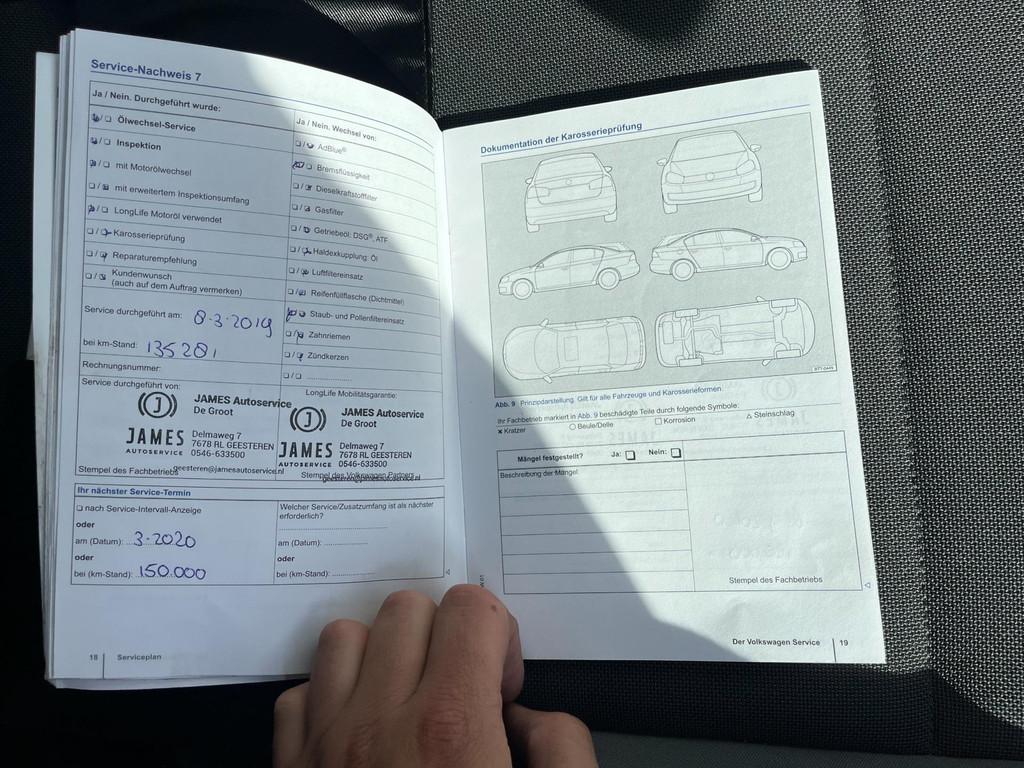 Service-Nachweis 7
Ja / Nein. Durchgeführt wurde:
Ölwechsel-Service
Inspektion
mit Motorölwechsel
mit erweitertem Inspektionsumfang
LongLife Motoröl verwendet
Karosserieprüfung
Reparaturempfehlung
Kundenwunsch
(auch auf dem Auftrag vermerken)
Service durchgeführt am: 8-3-2019
bei km-Stand: 135281
Rechnungsnummer:
Service durchgeführt von:
JAMES Autoservice
De Groot
JAMES
AUTOSERVICE
Delmaweg 7
7678 RL GEESTEREN
0546-633500
geesteren@jamesautoservice.nl
Stempel des Fachbetriebs
Ja / Nein. Wechsel von:
AdBlue®
Bremsflüssigkeit
Dieselkraftstofffilter
Gasfilter
Getriebeöl: DSG®, ATF
Haldexkupplung: Öl
Luftfiltereinsatz
Reifenfüllflasche (Dichtmittel)
Staub- und Pollenfiltereinsatz
Zahnriemen
Zündkerzen
LongLife Mobilitätsgarantie:
JAMES Autoservice
De Groot
JAMES
AUTOSERVICE
Delmaweg 7
7678 RL GEESTEREN
0546-633500
geesteren@jamesautoservice.nl
Stempel des Volkswagen Partners
Ihr nächster Service-Termin
nach Service-Intervall-Anzeige
oder
am (Datum): 3-2020
oder
bei (km-Stand): 150.000
Welcher Service/Zusatzumfang ist als nächster
erforderlich?
am (Datum):
oder
bei (km-Stand):
18 Serviceplan
Dokumentation der Karosserieprüfung
Abb. 9 Prinzipdarstellung. Gilt für alle Fahrzeuge und Karosserieformen.
Ihr Fachbetrieb markiert in Abb. 9 beschädigte Teile durch folgende Symbole:
x Kratzer ○ Beule/Delle □ Korrosion △ Steinschlag
Mängel festgestellt? Ja: Nein:
Beschreibung der Mängel:
Stempel des Fachbetriebs
Der Volkswagen Service 19